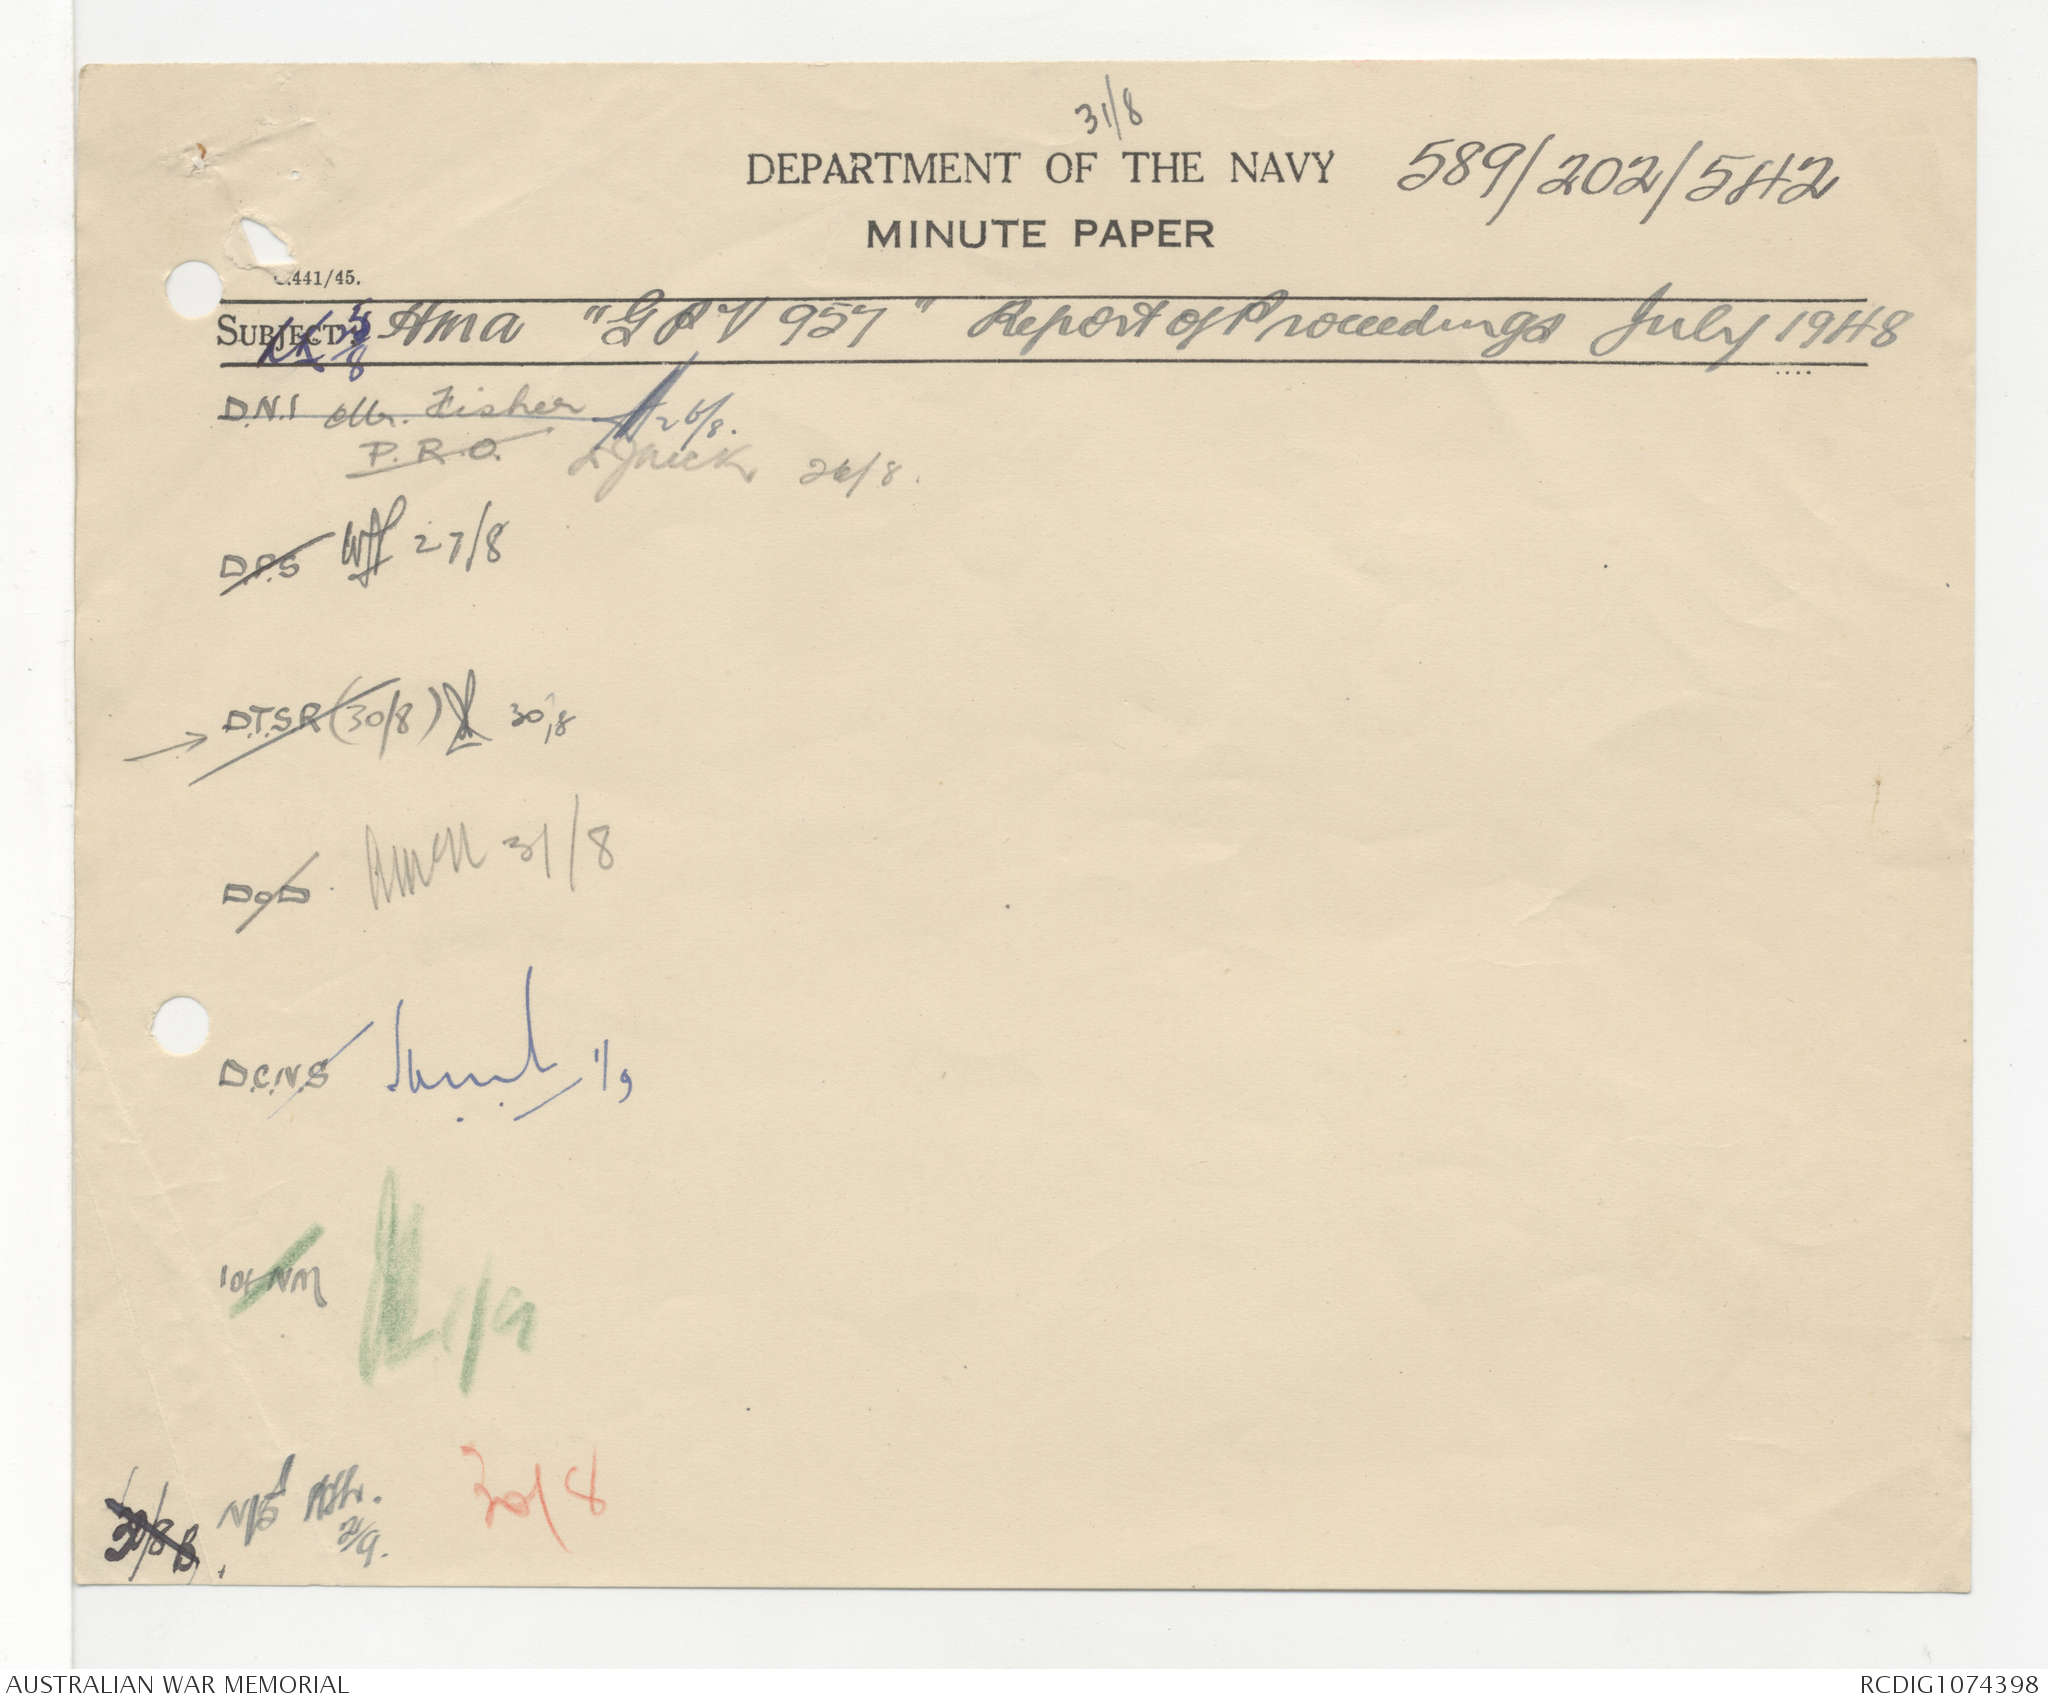 31/8
DEPARTMENT OF THE NAVY 589/202/542
MINUTE PAPER
.441/45.
SUBJECT: Hma "GPV 957" Report of Proceedings July 1948
D.N.I Mr. Fisher 26/8.
P.R.O. 26/8.
D.P.S 27/8
D.T.S.R (30/8) 30/8
DoD 31/8
D.C.N.S 1/9
1st NM
N/S 2/9. 30/8
AUSTRALIAN WAR MEMORIAL RCDIG1074398